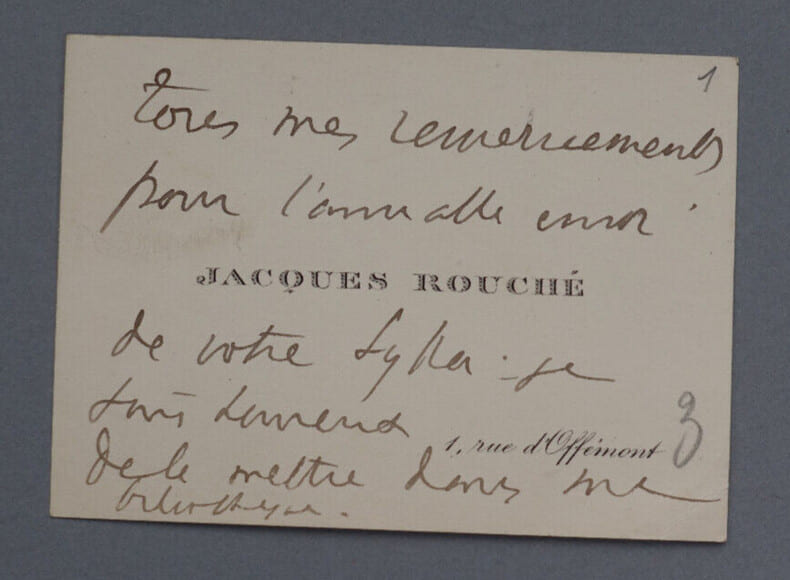 1
tous mes remerciements
pour l'aimable envoi
JACQUES ROUCHÉ
de votre Sylla - je
suis heureux
1, rue d'Offémont
3
de le mettre dans ma
bibliothèque.